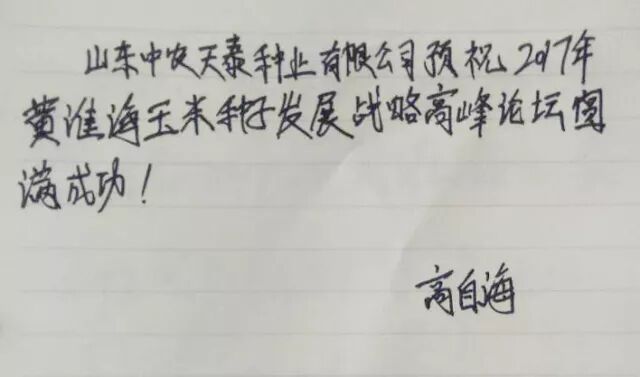 山东中农天泰种业有限公司预祝2017年
黄淮海玉米种子发展战略高峰论坛圆
满成功！
高自海